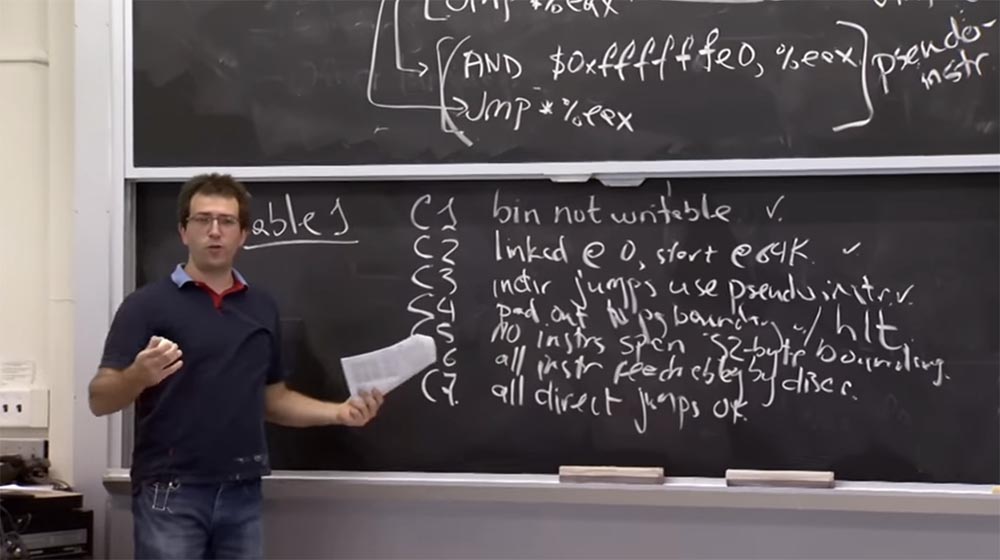 Jmp *%eax
AND $0xffffffe0, %eax
Jmp *%eax
pseudo-
instr
able 1
C1 bin not writable. ✓.
C2 linked @ 0, start @ 64K. ✓
C3 indir jumps use pseudoinstr. ✓.
C4 pad out to pg boundary w/ hlt.
C5 no instrs span 32-byte boundary.
6 all instr reachable by disas.
C7. all direct jumps OK.